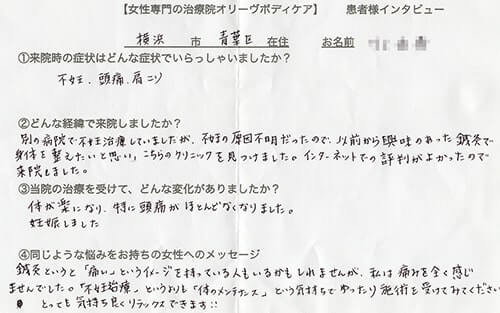 【女性専門の治療院オリーヴボディケア】 患者様インタビュー
横浜 市 青葉区 在住 お名前
①来院時の症状はどんな症状でいらっしゃいましたか？
不妊、頭痛、肩こり
②どんな経緯で来院しましたか？
別の病院で不妊治療していましたが、不妊の原因不明だったので、以前から興味のあった鍼灸で
身体を整えたいと思い、こちらのクリニックを見つけました。インターネットでの評判がよかったので
来院しました。
③当院の治療を受けて、どんな変化がありましたか？
体が楽になり、特に頭痛がほとんどなくなりました。
妊娠しました
④同じような悩みをお持ちの女性へのメッセージ
鍼灸というと「痛い」というイメージを持っている人もいるかもしれませんが、私は痛みを全く感じ
ませんでした。「不妊治療」というよりも「体のメンテナンス」という気持ちでゆったり施術を受けてみてください
とっても気持ち良くリラックスできます!!